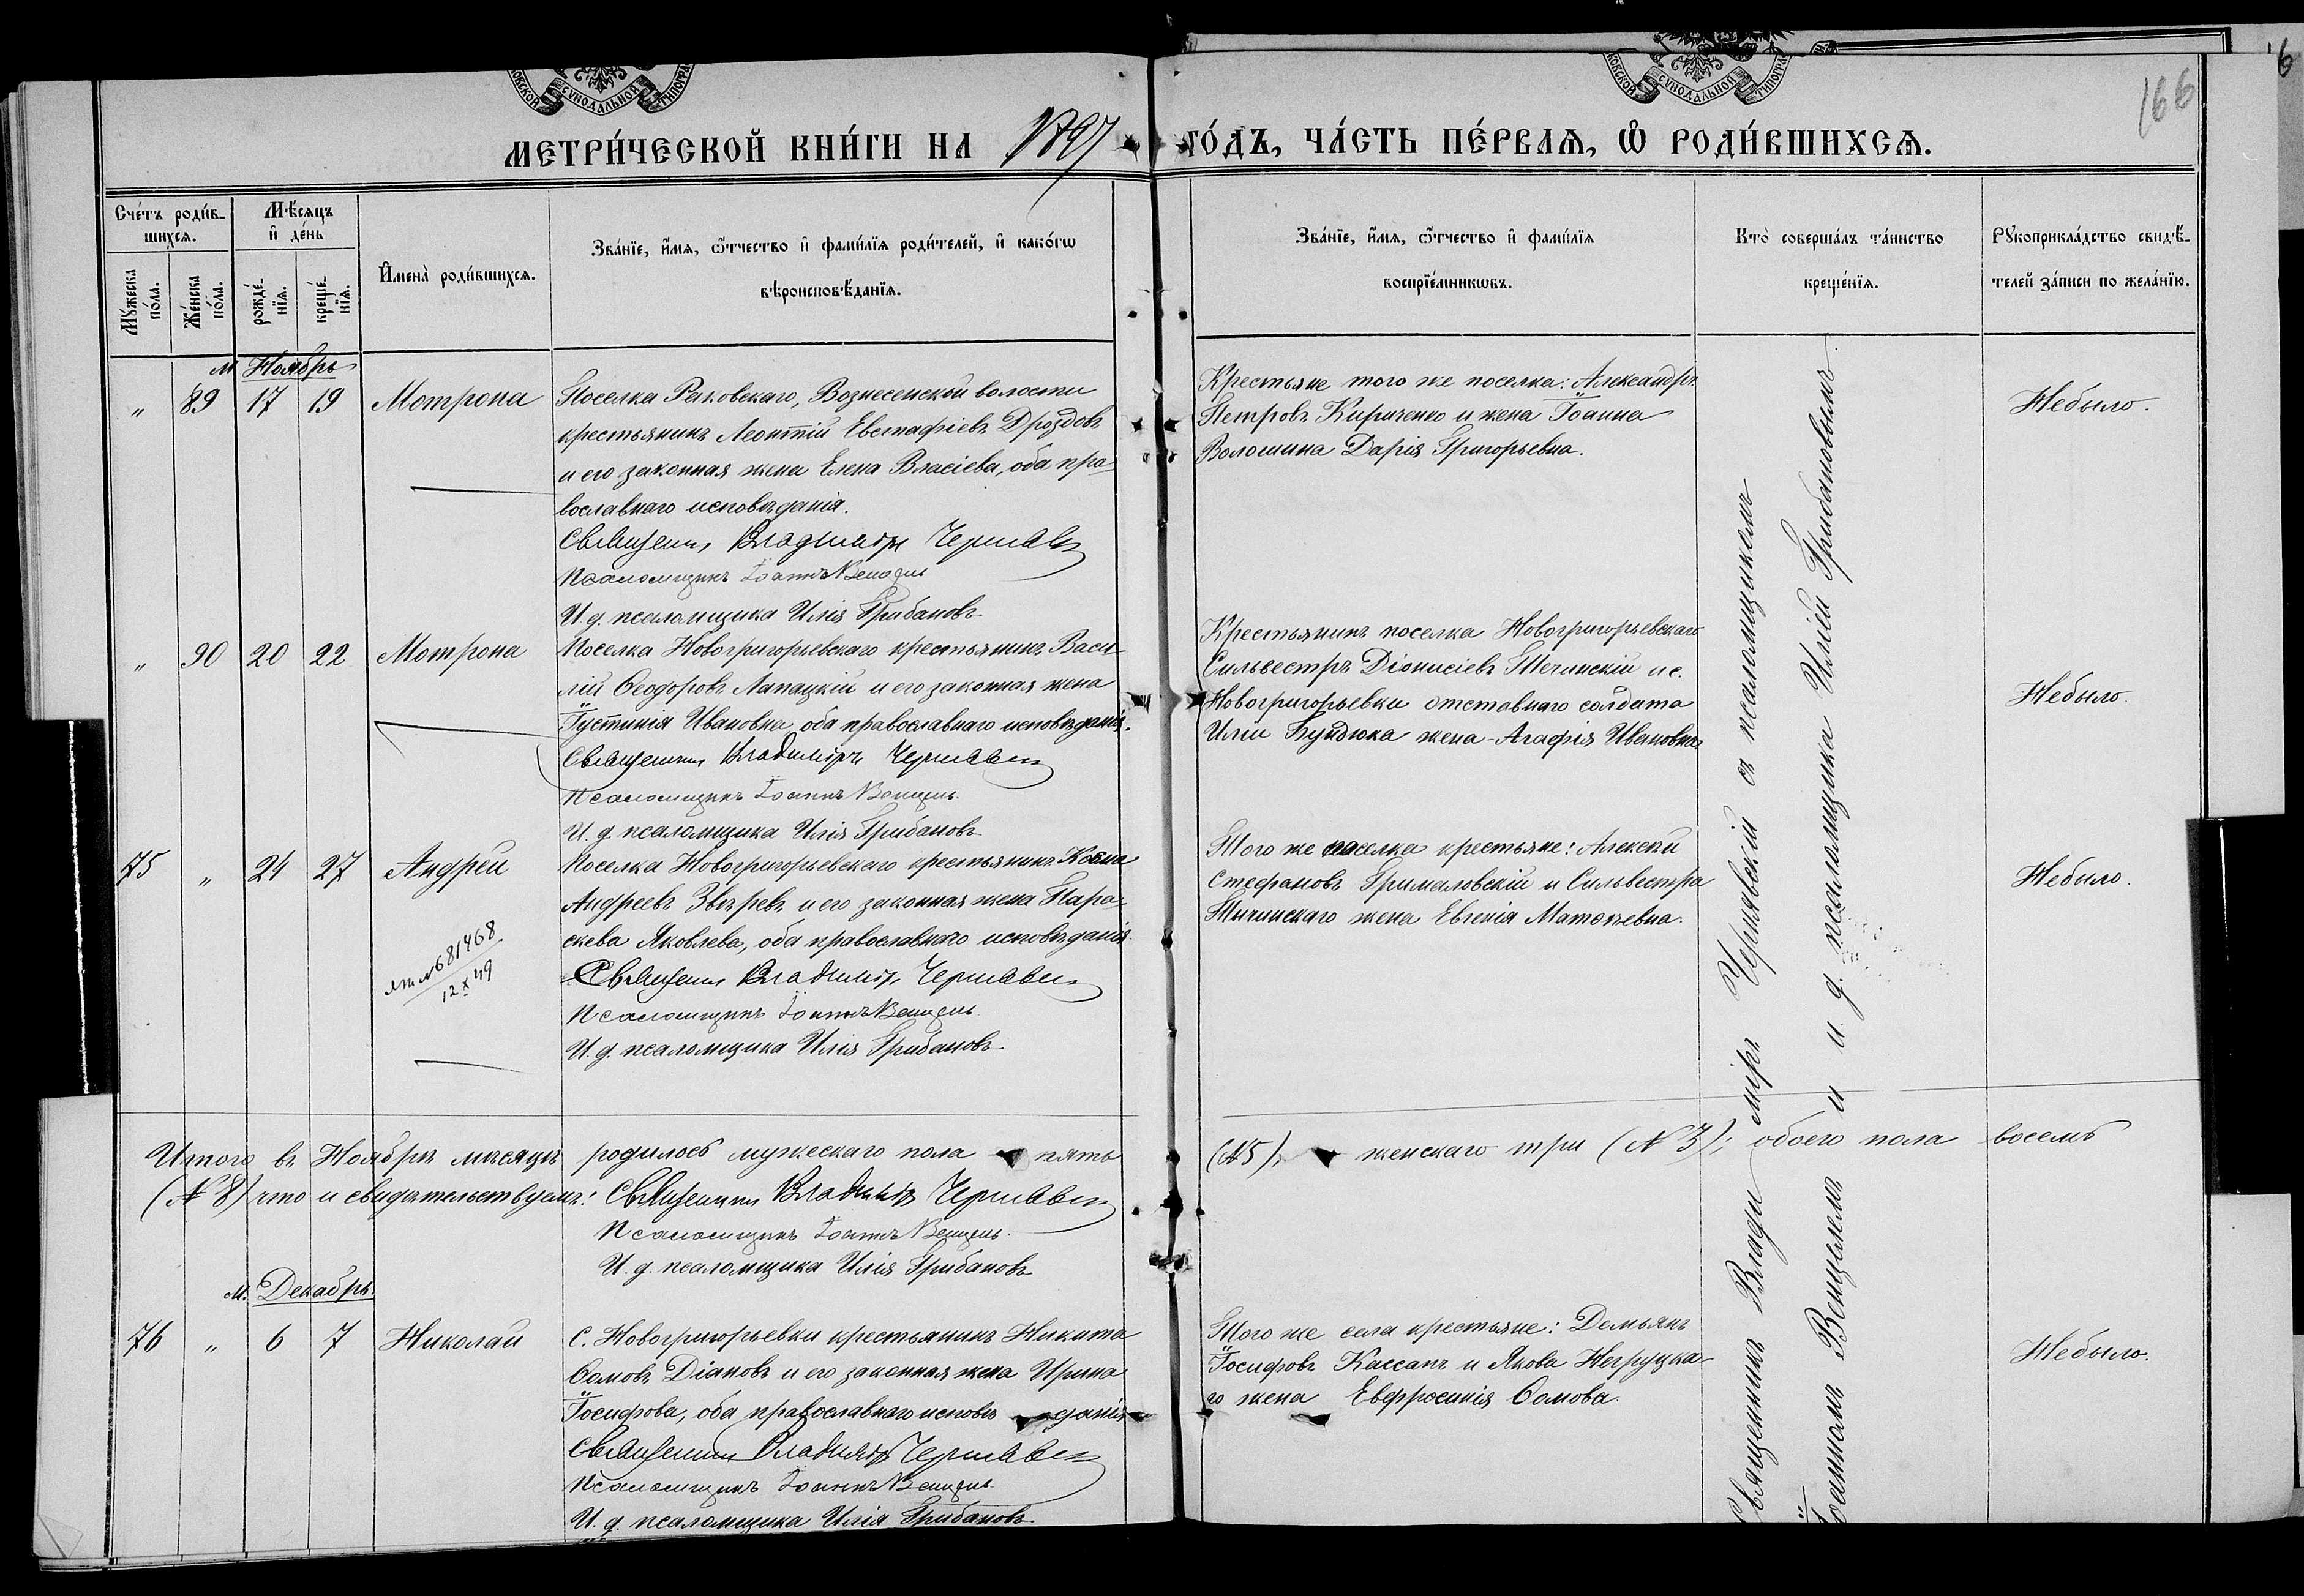 СѴНОДАЛЬНОЙ
СѴНОДАЛЬНОЙ
166
6
МЕТРИ́ЧЕСКОЙ КНИ́ГИ НА 1897 ГО́ДЪ, ЧА́СТЬ ПЕ́РВАѦ, Ѿ РОДИ́ВШИХСѦ.
Сче́тъ роди́в-
шихсѧ.
Мѣ́сѧцъ
и҆ де́нь
Мꙋ́жеска по́ла.
Же́нска по́ла.
рожде́-
нїѧ.
креще́-
нїѧ.
И҆мена̀ роди́вшихсѧ.
Зва́нїе, и҆́мѧ, ѻ҆́тчество и҆ фами́лїѧ роди́телей, и҆ како́гѡ
вѣроисповѣ́данїѧ.
Зва́нїе, и҆́мѧ, ѻ҆́тчество и҆ фами́лїѧ
воспрїе́мникѡвъ.
Кто̀ соверша́лъ та́инство
креще́нїѧ.
Рꙋкоприкла́дство свидѣ́-
телей за́писи по жела́нїю.
м. Ноябрь
„ 89 17 19 Мотрона
Поселка Раковскаго, Вознесенской волости
крестьянинъ Леонтій Евстафіевъ Дроздовъ
и его законная жена Елена Власіева, оба пра-
вославнаго исповѣданія.
Священникъ Владиміръ Чернявскій
Псаломщикъ Іоаннъ Венцель
И. д. псаломщика Илія Грибановъ
Крестьяне того же поселка: Александръ
Петровъ Кириченко и жена Іоанна
Волошина Дарія Григорьевна.
Небыло.
„ 90 20 22 Мотрона
Поселка Новогригорьевскаго крестьянинъ Васи-
лій Ѳеодоровъ Лапацкій и его законная жена
Іустинія Ивановна, оба православнаго исповѣданія.
Священникъ Владиміръ Чернявскій
Псаломщикъ Іоаннъ Венцель.
И. д. псаломщика Илія Грибановъ
Крестьянинъ поселка Новогригорьевскаго
Сильвестръ Діонисіевъ Тычинскій и с.
Новогригорьевки отставнаго солдата
Иліи Бундюка жена - Агафія Ивановна
Небыло.
75 „ 24 27 Андрей
Поселка Новогригорьевскаго крестьянинъ Косма
Андреевъ Звѣревъ и его законная жена Пара-
скева Яковлева, оба православнаго исповѣданія
Священникъ Владиміръ Чернявскій
Псаломщикъ Іоаннъ Венцель.
И. д. псаломщика Илія Грибановъ
681468
12 X 49
Того же поселка крестьяне: Алексѣй
Стефановъ Грималовскій и Сильвестра
Тычинскаго жена Евгенія Матѳеевна.
Небыло.
Итого въ Ноябрѣ мѣсяцѣ родилось мужескаго пола пять (№ 5), женскаго три (№ 3); обоего пола восемь
(№ 8) что и свидѣтельствуемъ: Священникъ Владиміръ Чернявскій
Псаломщикъ Іоаннъ Венцель.
И. д. псаломщика Илія Грибановъ
м. Декабрь.
76 „ 6 7 Николай
С. Новогригорьевки крестьянинъ Никита
Ѳомовъ Діановъ и его законная жена Ирина
Іосифова, оба православнаго исповѣданія
Священникъ Владиміръ Чернявскій
Псаломщикъ Іоаннъ Венцель.
И. д. псаломщика Илія Грибановъ
Того же села крестьяне: Демьянъ
Іосифовъ Кассапъ и Якова Негруцка-
го жена Евфросинія Ѳомова.
Небыло.
Священникъ Владиміръ Чернявскій съ псаломщикомъ
Іоанномъ Венцелемъ и и. д. псаломщика Иліей Грибановымъ.